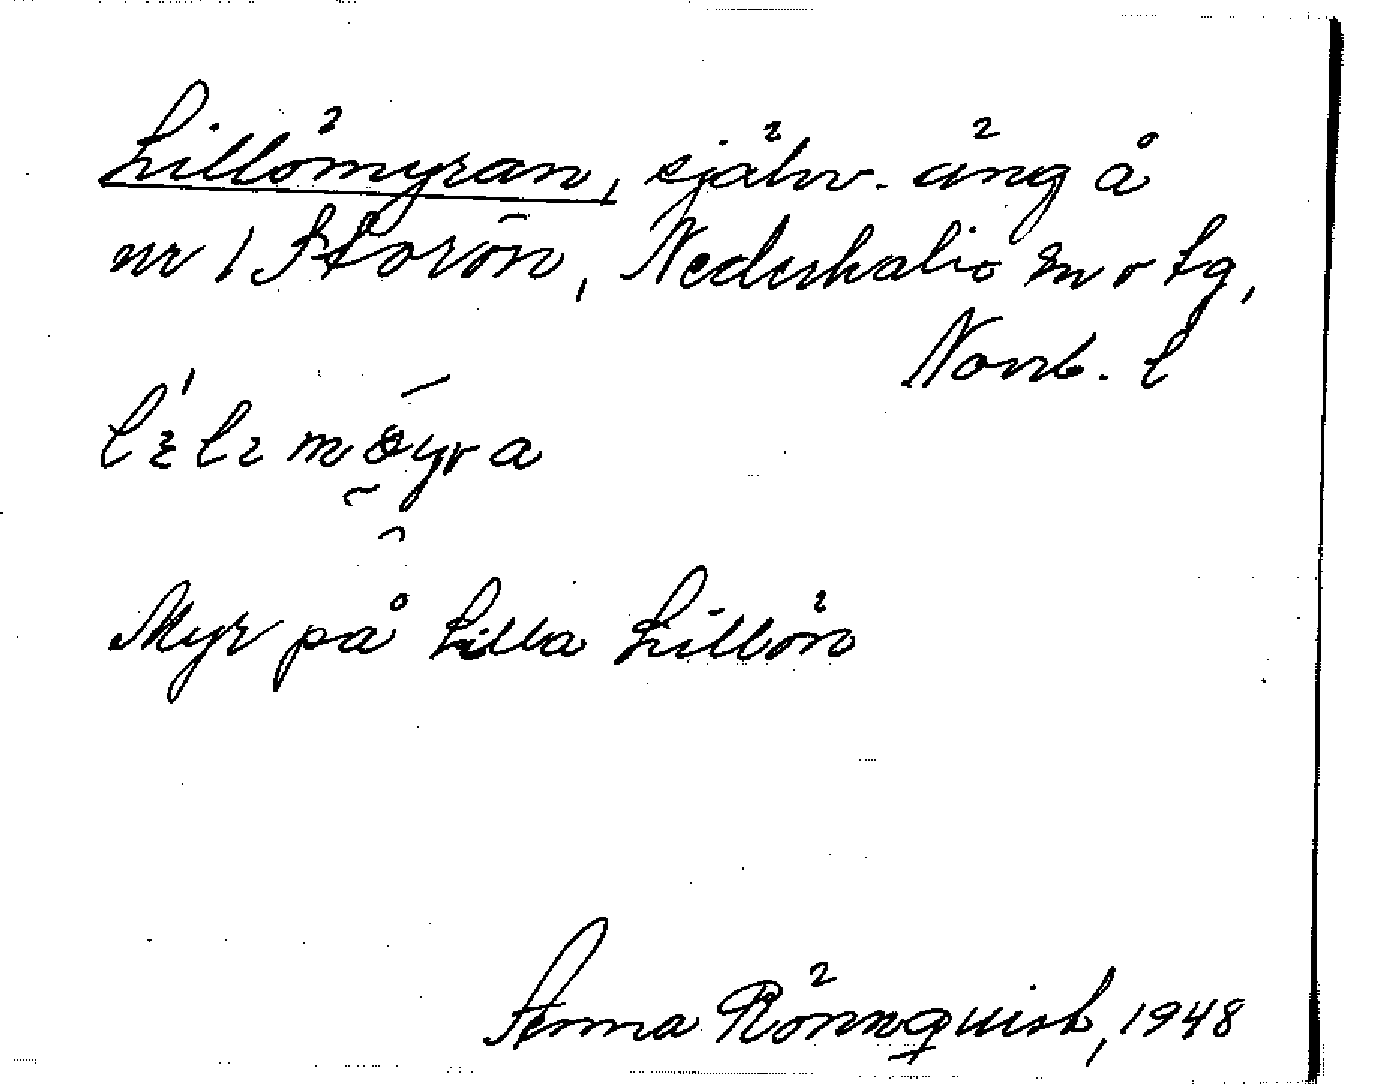 Lillömyran, självv. äng å
nr 1 Storön, Nederkalix sn o tg,
Norrb. l
Myr på Lilla Lillön
Anna Rönnquist, 1948